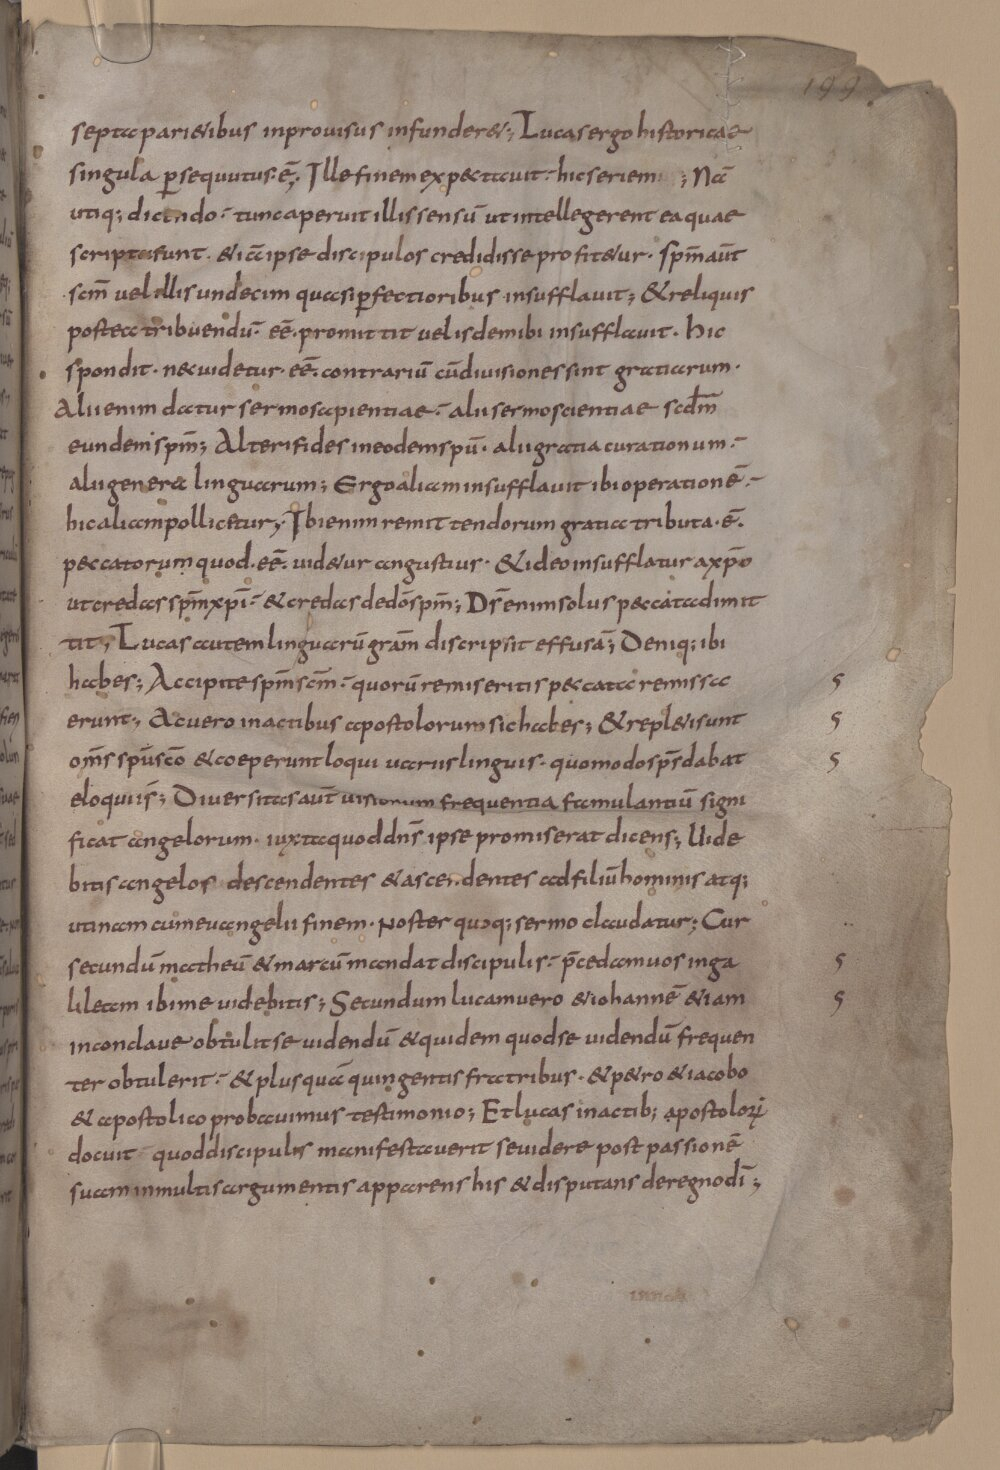 199
septa pari&ibus inprouisus infunder&; Lucas ergo historicae
singula ꝑsequutus·ē; Ille finem expectauit· hic seriem ; Nā
utiq; dicendo· tunc aperuit illis sensū ut intellegerent ea quae
scripta sunt· &iā ipse discipulos credidisse profit&ur· spm̄ aūt
scm̄ uel illis undecim quasi ꝑfectioribus insufflauit; &reliquis
postea tribuendū· eē· promittit uel isdem ibi insufflauit· hic
spondit· nec uidetur· eē· contrariū cū diuisiones sint gratiarum·
Alii enim datur sermo sapientiae· alii sermo scientiae scdm̄
eundem spm̄; Alteri fides in eodem spū· alii gratia curationum·
alii genera linguarum; Ergo aliam insufflauit ibi operationē·
hic aliam pollicetur; Ibi enim remittendorum gratia tributa·ē·
peccatorum quod·eē· uid&ur angustius· &ideo insufflatur a xp̄o
ut credas spm̄ xpī· &credas de dō spm̄; Ds̄ enim solus peccata dimit
tit; Lucas autem linguarū gram̄ discripsit effusā; Deniq; ibi
habes; Accipite spm̄ scm̄· quorū remiseritis peccata remissa
erunt; Ac uero in actibus apostolorum sic habes; &repl&i sunt
om̄s spū scō &coeperunt loqui uariis linguis· quomodo sps̄ dabat
eloqui is̄; Diuersitas aūt uisionum frequentia famulantiū signi
ficat angelorum· iuxta quod dn̄s ipse promiserat dicens; Uide
bitis angelos descendentes &ascendentes ad filiū hominis atq;
utinam cum euangelii finem· noster quoq; sermo claudatur; Cur
secundū matheū &marcū mandat discipulis· p̄cedam uos in ga
lileam ibi me uidebitis; Secundum lucam uero &iohannē &iam
in conclaue obtulit se uidendū &quidem quod se uidendū frequen
ter obtulerit· &plus quā quingentis fratribus· &p&ro &iacobo
&apostolico probauimus testimonio; Et lucas in actib; apostoloꝝ
docuit quod discipulis manifestauerit se uidere post passionē
suam in multis argumentis apparens his &disputans de regno dī;